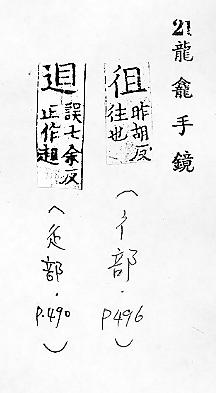 21龍龕手鏡
徂昨胡反往也
(彳部.P496)
𨒡誤七余反正作趄
(辵部.P.490)